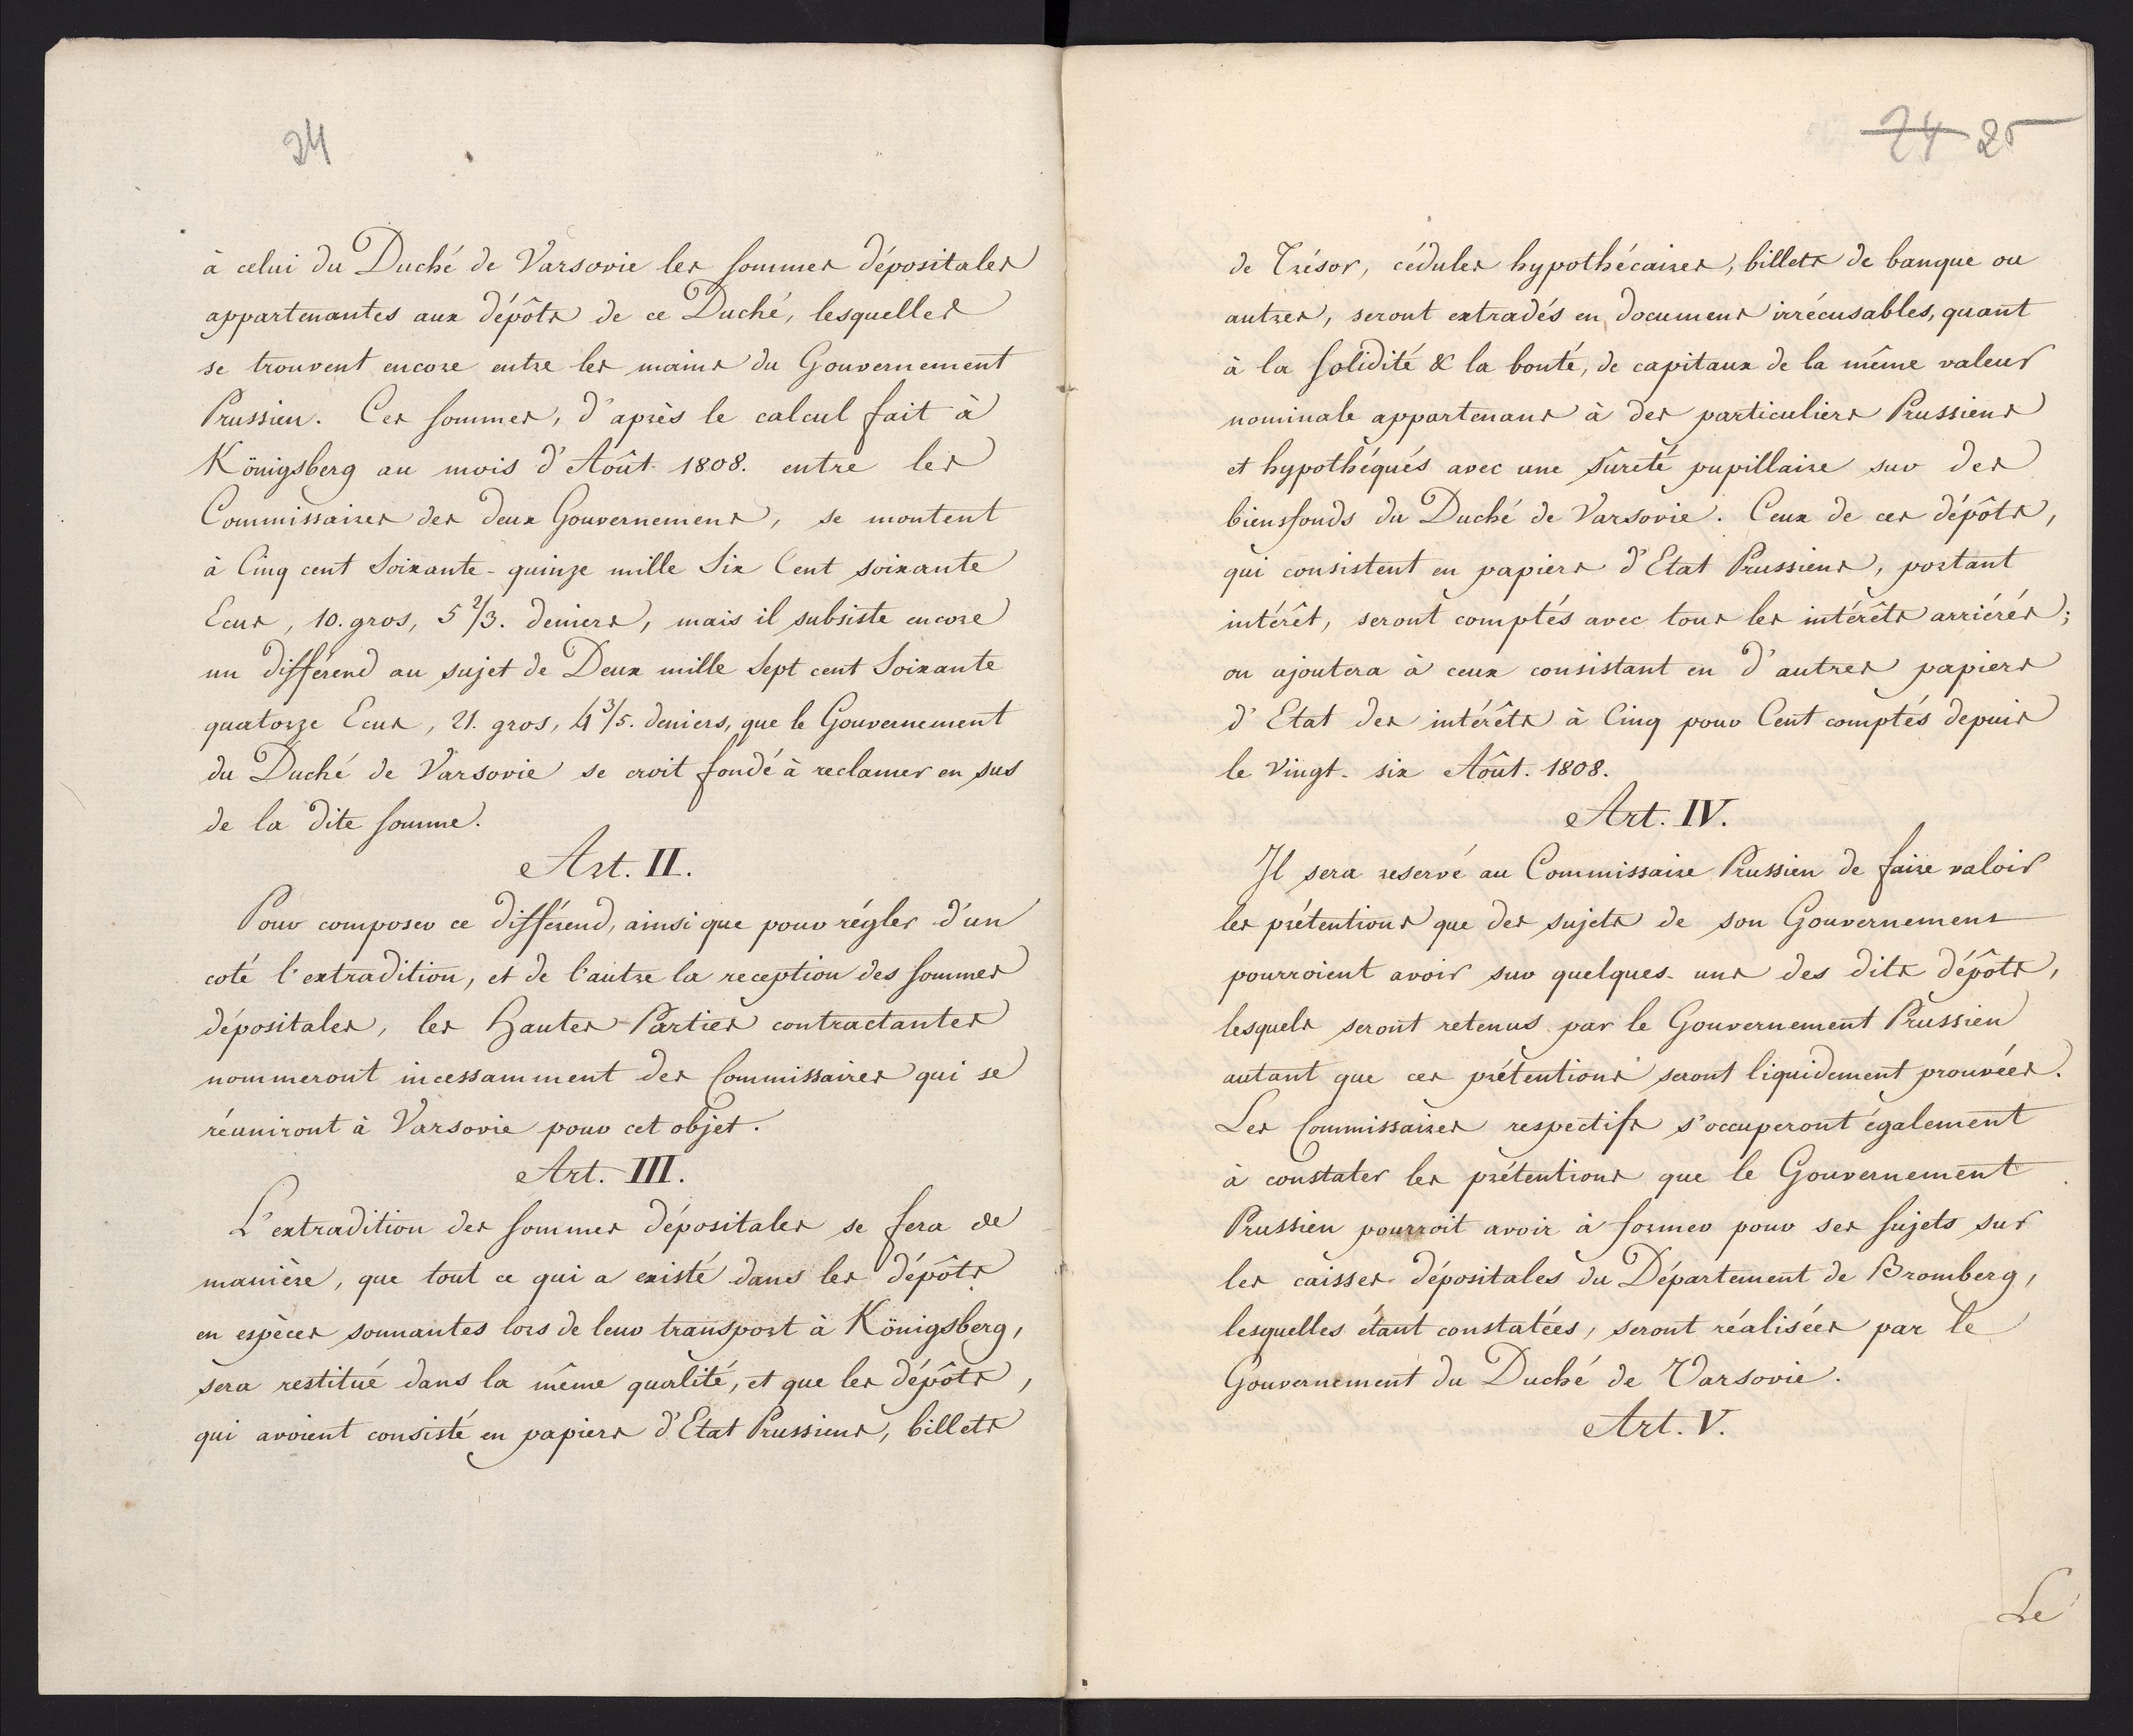 24
à celui du Duché de Varsovie les sommes dépositales
appartenantes aux dépôts de ce Duché, lesquelles
se trouvent encore entre les mains du Gouvernement
Prussien. Ces sommes, d'après le calcul fait à
Königsberg au mois d'Août 1808. entre les
Commissaires des deux Gouvernemens, se montent
à Cinq cent Soixante-quinze mille Six Cent soixante
Ecus, 10. gros, 5 2/3. deniers, mais il subsiste encore
un différend au sujet de Deux mille Sept cent Soixante
quatorze Ecus, 21. gros, 4 3/5. deniers, que le Gouvernement
du Duché de Varsovie se croit fondé à reclamer en sus
de la dite somme.
Art. II.
Pour composer ce différend, ainsi que pour régler d'un
coté l'extradition, et de l'autre la reception des sommes
dépositales, les Hautes Parties contractantes
nommeront incessamment des Commissaires qui se
réuniront à Varsovie pour cet objet.
Art. III.
L'extradition des sommes dépositales se fera de
manière, que tout ce qui a existé dans les dépôts
en espèces sonnantes lors de leur transport à Königsberg,
sera restitué dans la même qualité, et que les dépôts,
qui avoient consisté en papiers d'Etat Prussiens, billets
24 25
de Trésor, cédules hypothécaires, billets de banque ou
autres, seront extradés en documens irrécusables, quant
à la solidité & la bonté, de capitaux de la même valeur
nominale appartenans à des particuliers Prussiens
et hypothéqués avec une sûreté pupillaire sur des
biensfonds du Duché de Varsovie. Ceux de ces dépôts,
qui consistent en papiers d'Etat Prussiens, portant
intérêt, seront comptés avec tous les intérêts arriérés;
on ajoutera à ceux consistant en d'autres papiers
d'Etat des intérêts à Cinq pour Cent comptés depuis
le Vingt-six Août. 1808.
Art. IV.
Il sera reservé au Commissaire Prussien de faire valoir
les prétentions que des sujets de son Gouvernement
pourroient avoir sur quelques-uns des dits dépôts,
lesquels seront retenus par le Gouvernement Prussien
autant que ces prétentions seront liquidement prouvées.
Les Commissaires respectifs s'occuperont également
à constater les prétentions que le Gouvernement
Prussien pourroit avoir à former pour ses sujets sur
les caisses dépositales du Département de Bromberg,
lesquelles étant constatées, seront réalisées par le
Gouvernement du Duché de Varsovie.
Art. V.
Le